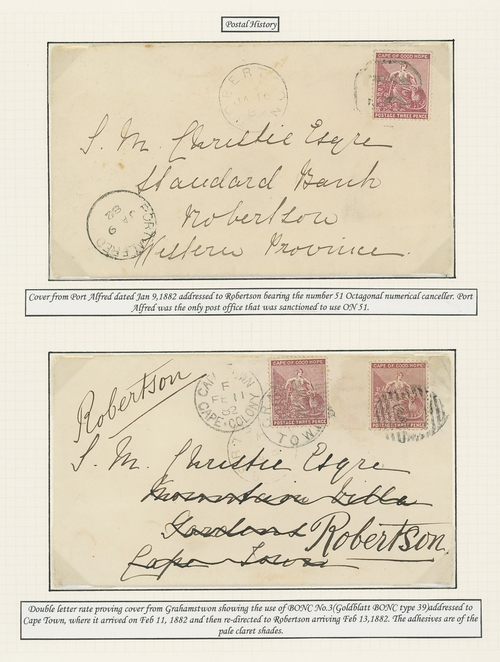 Postal History
CAPE OF GOOD HOPE
POSTAGE THREE PENCE
S. M. Christie Esqre
Standard Bank
Robertson
Western Province.
PORT ALFRED
JA 9
82
Cover from Port Alfred dated Jan 9,1882 addressed to Robertson bearing the number 51 Octagonal numerical canceller. Port
Alfred was the only post office that was sanctioned to use ON 51.
Robertson
CAPE TOWN
F
FE 11
82
CAPE COLONY
CAPE OF GOOD HOPE
POSTAGE THREE PENCE
CAPE OF GOOD HOPE
POSTAGE THREE PENCE
S. M. Christie Esqre
Mountain Villa
Gardens Robertson.
Cape Town
Double letter rate proving cover from Grahamstwon showing the use of BONC No.3(Goldblatt BONC type 39)addressed to
Cape Town, where it arrived on Feb 11, 1882 and then re-directed to Robertson arriving Feb 13,1882. The adhesives are of the
pale claret shades.